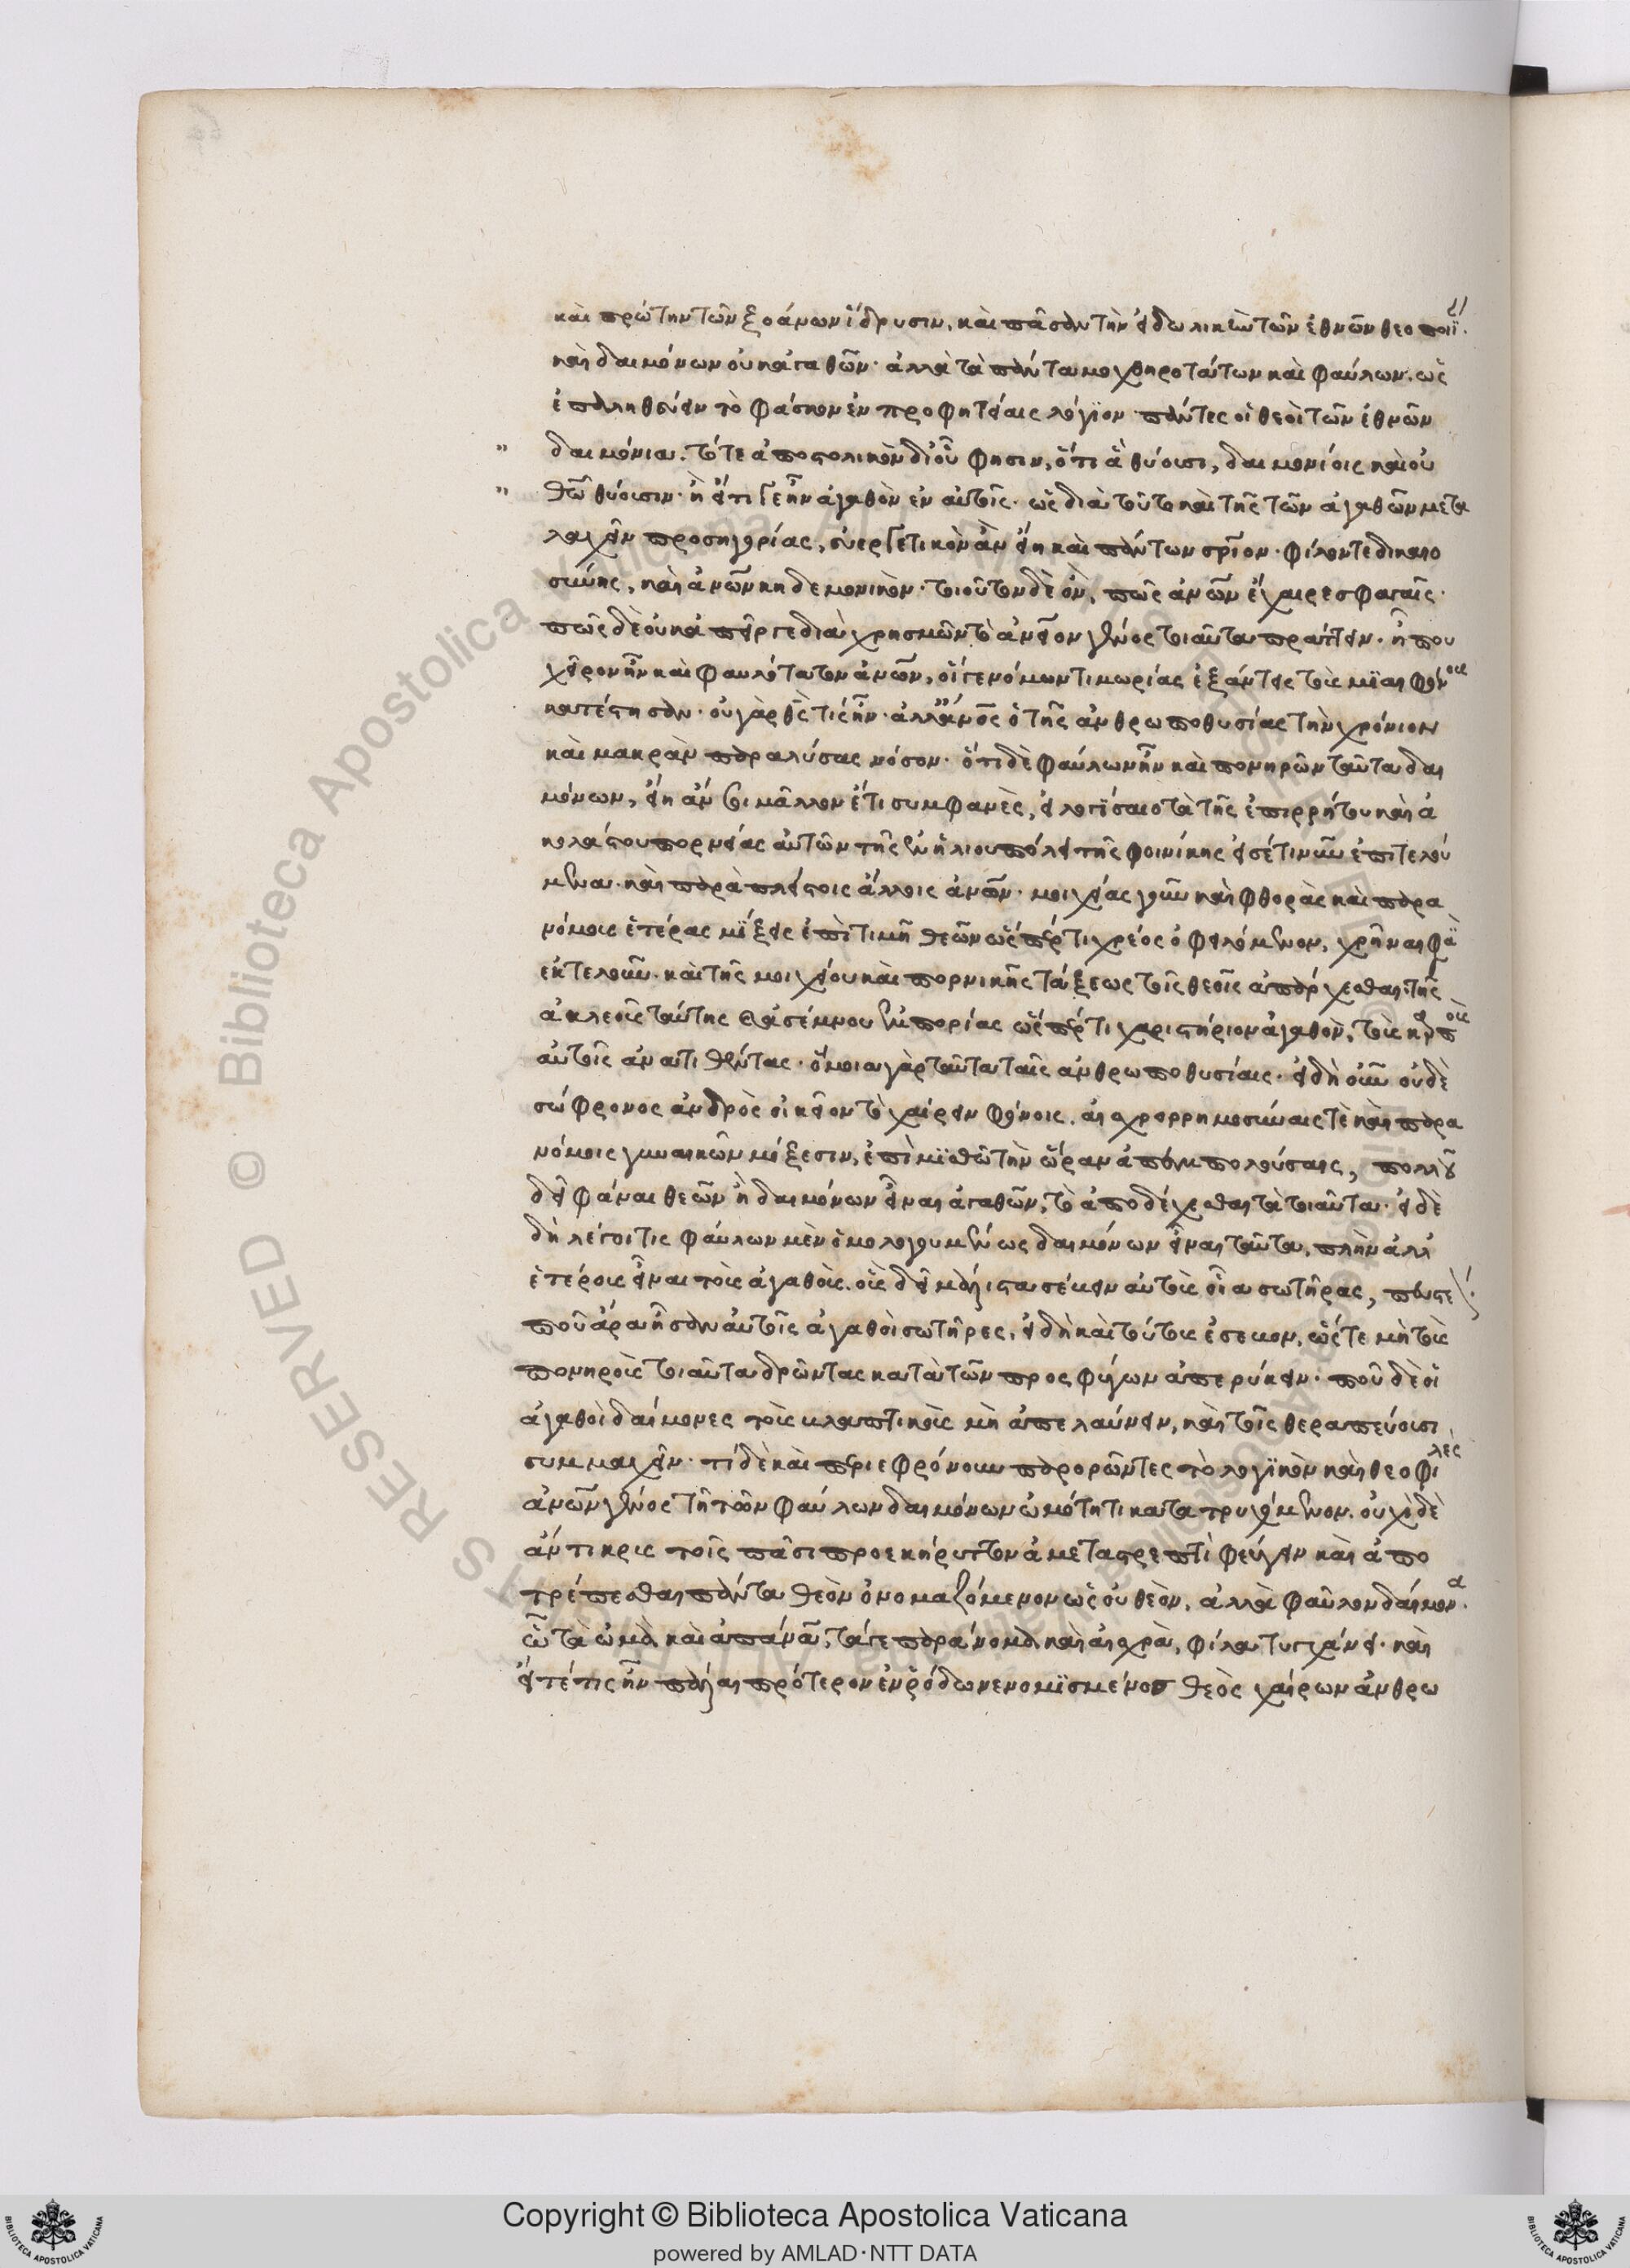 καὶ πρώτην τῶν ξοάνων ἵδρυσιν. καὶ πᾶσαν τὴν εἰδωλικὴν τῶν ἐθνῶν θεοποιΐ
καὶ δαιμόνων οὐκ ἀγαθῶν· ἀλλὰ τὰ πάντα μοχθηροτάτων καὶ φαύλων. ὡς
ἐπαληθεύειν τὸ φάσκον ἐν προφητείαις λόγϊον πάντες οἱ θεοὶ τῶν ἐθνῶν
" δαιμόνια. τό τε ἀποστολικὸν δι' οὗ φησιν, ὅτι ἃ θύουσι, δαιμονίοις καὶ οὐ
" θῶ θύουσιν· ἢ εἴ τι γε ἦν ἀγαθὸν ἐν αὐτοῖς. ὡς διὰ τοῦτο καὶ τῆς τῶν ἀγαθῶν μετα
λαχεῖν προσηγορίας, εὐεργετικὸν ἂν εἴη καὶ πάντων σρῖον· φίλον τε δικαιο
σύνης, καὶ ἀνῶν κηδεμονικὸν· τοιοῦτον δὲ ὂν, πῶς ἀνῶν ἔχαιρε σφαγαῖς·
πῶς δὲ οὐκ ἀπεῖργε διὰ χρησμῶν τὸ ἀνειον γένος τοιαῦτα πράττειν. ἦ που
χεῖρον ἦν καὶ φαυλότατον ἀνῶν, οἵ γε νόμων τιμωρίας ἐξάντεις τοὺς μϊαιφόνους
κατέστησαν· οὐ γὰρ θς τίς ἦν· ἀλλ' ἄνος ὁ τῆς ἀνθρωποθυσίας τὴν χρόνιον
καὶ μακρὰν παραλύσας νόσον· ὅτι δὲ φαύλων ἦν καὶ πονηρῶν ταῦτα δαι
μόνων, εἴη ἄν σοι μᾶλλον ἔτι συμφανὲς, εἰ λογίσαιο τὰ τῆς ἐπιρρήτου καὶ ἀ
κολάστου πορνείας αὐτῶν τῆς ἐν ἡλιουπόλει τῆς φοινίκης εἰσέτι νῦν ἐπιτελού
μενα. καὶ παρὰ πλείστοις ἄλλοις ἀνῶν· μοιχείας γοῦν καὶ φθορὰς καὶ παρα
νόμους ἑτέρας μίξεις ἐπὶ τιμῆ θεῶν ὥσπέρ τι χρέος ὀφειλόμενον, χρῆναι φασὶ
ἐκτελεῖν. καὶ τῆς μοιχείου καὶ πορνικῆς τάξεως τοῖς θεοῖς ἀπάρχεσθαι. τῆς
ἀκλεοῦς ταύτης καὶ ἀσέμνου ἐμπορίας ὥσπέρ τι χαριστήριον ἀγαθὸν, τοὺς καρποὺς
αὐτοῖς ἀνατιθέντας· ὅμοια γὰρ ταῦτα ταῖς ἀνθρωποθυσίαις· εἰ δὴ οὖν οὐδὲ
σώφρονος ἀνδρὸς οἰκεῖον τὸ χαίρειν φόνοις. αἰσχρορρημοσύναις τὲ καὶ παρα
νόμοις γυναικῶν μίξεσιν, ἐπὶ μϊσθῶ τὴν ὥραν ἀπεμπολούσαις, πολλοῦ
δεῖ φάναι θεῶν ἢ δαιμόνων εἶναι ἀγαθῶν, τὸ ἀποδέχεσθαι τὰ τοιαῦτα· εἰ δὲ
δὴ λέγοι τις φαύλων μὲν ὁμολογουμένως δαιμόνων εἶναι ταῦτα, πλὴν ἀλλ'
ἑτέρους εἶναι τοὺς ἀγαθοὺς. οὓς δεῖ μάλιστα σέβειν αὐτοὺς οἷα σωτῆρας,
ποῦ ἄρα ἦσαν αὐτοῖς ἀγαθοὶ σωτῆρες, εἰ δὴ καὶ τούτους ἔσεβον, ὥστε μὴ τοὺς
πονηροὺς τοιαῦτα δρῶντας κατὰ τῶν προσφύγων ἀπερύκειν. ποῦ δὲ οἱ
ἀγαθοὶ δαίμονες τοὺς βλαπτικοὺς μὴ ἀπελαύνειν, καὶ τοῖς θεραπεύουσι
συμμαχεῖν. τί δὲ καὶ περιεφρόνουν παρορῶντες τὸ λογϊκὸν καὶ θεοφιλὲς
ἀνῶν γένος τῆ τῶν φαύλων δαιμόνων ὠμότητι κατατρυχόμενον. οὐχὶ δὲ
ἄντικρυς τοῖς πᾶσι προεκήρυττον ἀμεταστρεπτὶ φεύγειν καὶ ἀπο
τρέπεσθαι πάντα θεὸν ὀνομαζόμενον ὡς οὐ θεὸν, ἀλλὰ φαῦλον δαίμονα
ὧ τὰ ὠμὰ καὶ ἀπάνᾶ, τά γε παράνομα καὶ αἰσχρὰ, φίλα τυγχάνει· καὶ
εἴ τέ τις ἦν πάλαι πρότερον ἐν ῥόδω νενομϊσμένος θεὸς χαίρων ἀνθρω